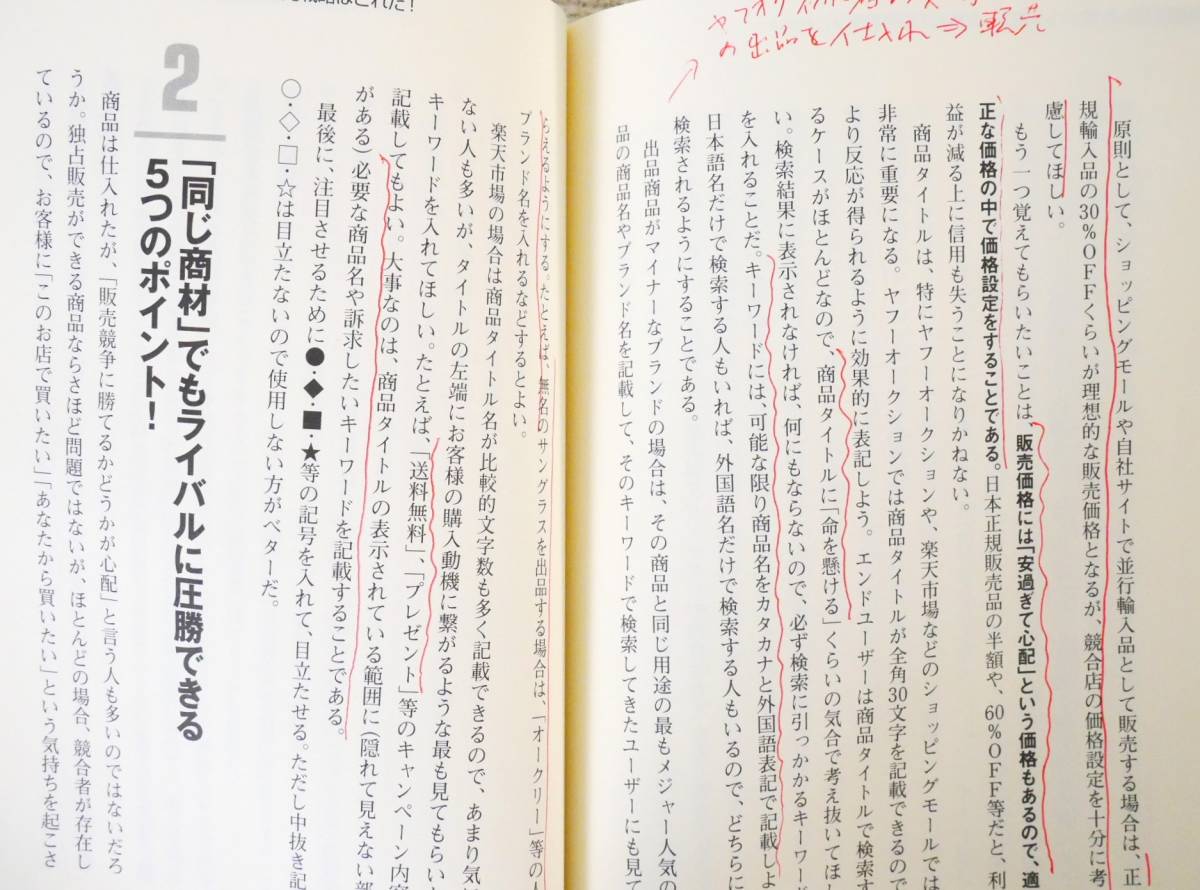 の出品を仕入れ⇒転売
原則として、ショッピングモールや自社サイトで並行輸入品として販売する場合は、正
規輸入品の30%OFFくらいが理想的な販売価格となるが、競合店の価格設定を十分に考
慮してほしい。
もう一つ覚えてもらいたいことは、販売価格には「安過ぎて心配」という価格もあるので、適
正な価格の中で価格設定をすることである。日本正規販売品の半額や、60%OFF等だと、利
益が減る上に信用も失うことになりかねない。
商品タイトルは、特にヤフーオークションや、楽天市場などのショッピングモールでは
非常に重要になる。ヤフーオークションでは商品タイトルが全角30文字を記載できるので
より反応が得られるように効果的に表記しよう。エンドユーザーは商品タイトルで検索す
るケースがほとんどなので、商品タイトルに「命を懸ける」くらいの気合で考え抜いてほし
い。検索結果に表示されなければ、何にもならないので、必ず検索に引っかかるキーワード
を入れることだ。キーワードには、可能な限り商品名をカタカナと外国語表記で記載しよ
日本語名だけで検索する人もいれば、外国語名だけで検索する人もいるので、どちらに
検索されるようにすることである。
出品商品がマイナーなブランドの場合は、その商品と同じ用途の最もメジャー人気の
品の商品名やブランド名を記載して、そのキーワードで検索してきたユーザーにも見て
らえるようにする。たとえば、無名のサングラスを出品する場合は、「オークリー」等の人
ブランド名を入れるなどするとよい。
楽天市場の場合は商品タイトル名が比較的文字数も多く記載できるので、あまり気に
ない人も多いが、タイトルの左端にお客様の購入動機に繋がるような最も見てもらい
キーワードを入れてほしい。たとえば、「送料無料」、「プレゼント」等のキャンペーン内容
記載してもよい。大事なのは、商品タイトルの表示されている範囲に(隠れて見えない部
がある)必要な商品名や訴求したいキーワードを記載することである。
最後に、注目させるために●・◆・■・★等の記号を入れて、目立たせる。ただし中抜き記
○・◇・□・☆は目立たないので使用しない方がベターだ。
2
「同じ商材」でもライバルに圧勝できる
5つのポイント!
商品は仕入れたが、「販売競争に勝てるかどうかが心配」と言う人も多いのではないだろ
うか。独占販売ができる商品ならさほど問題ではないが、ほとんどの場合、競合者が存在し
ているので、お客様に「このお店で買いたい」「あなたから買いたい」という気持ちを起こさ